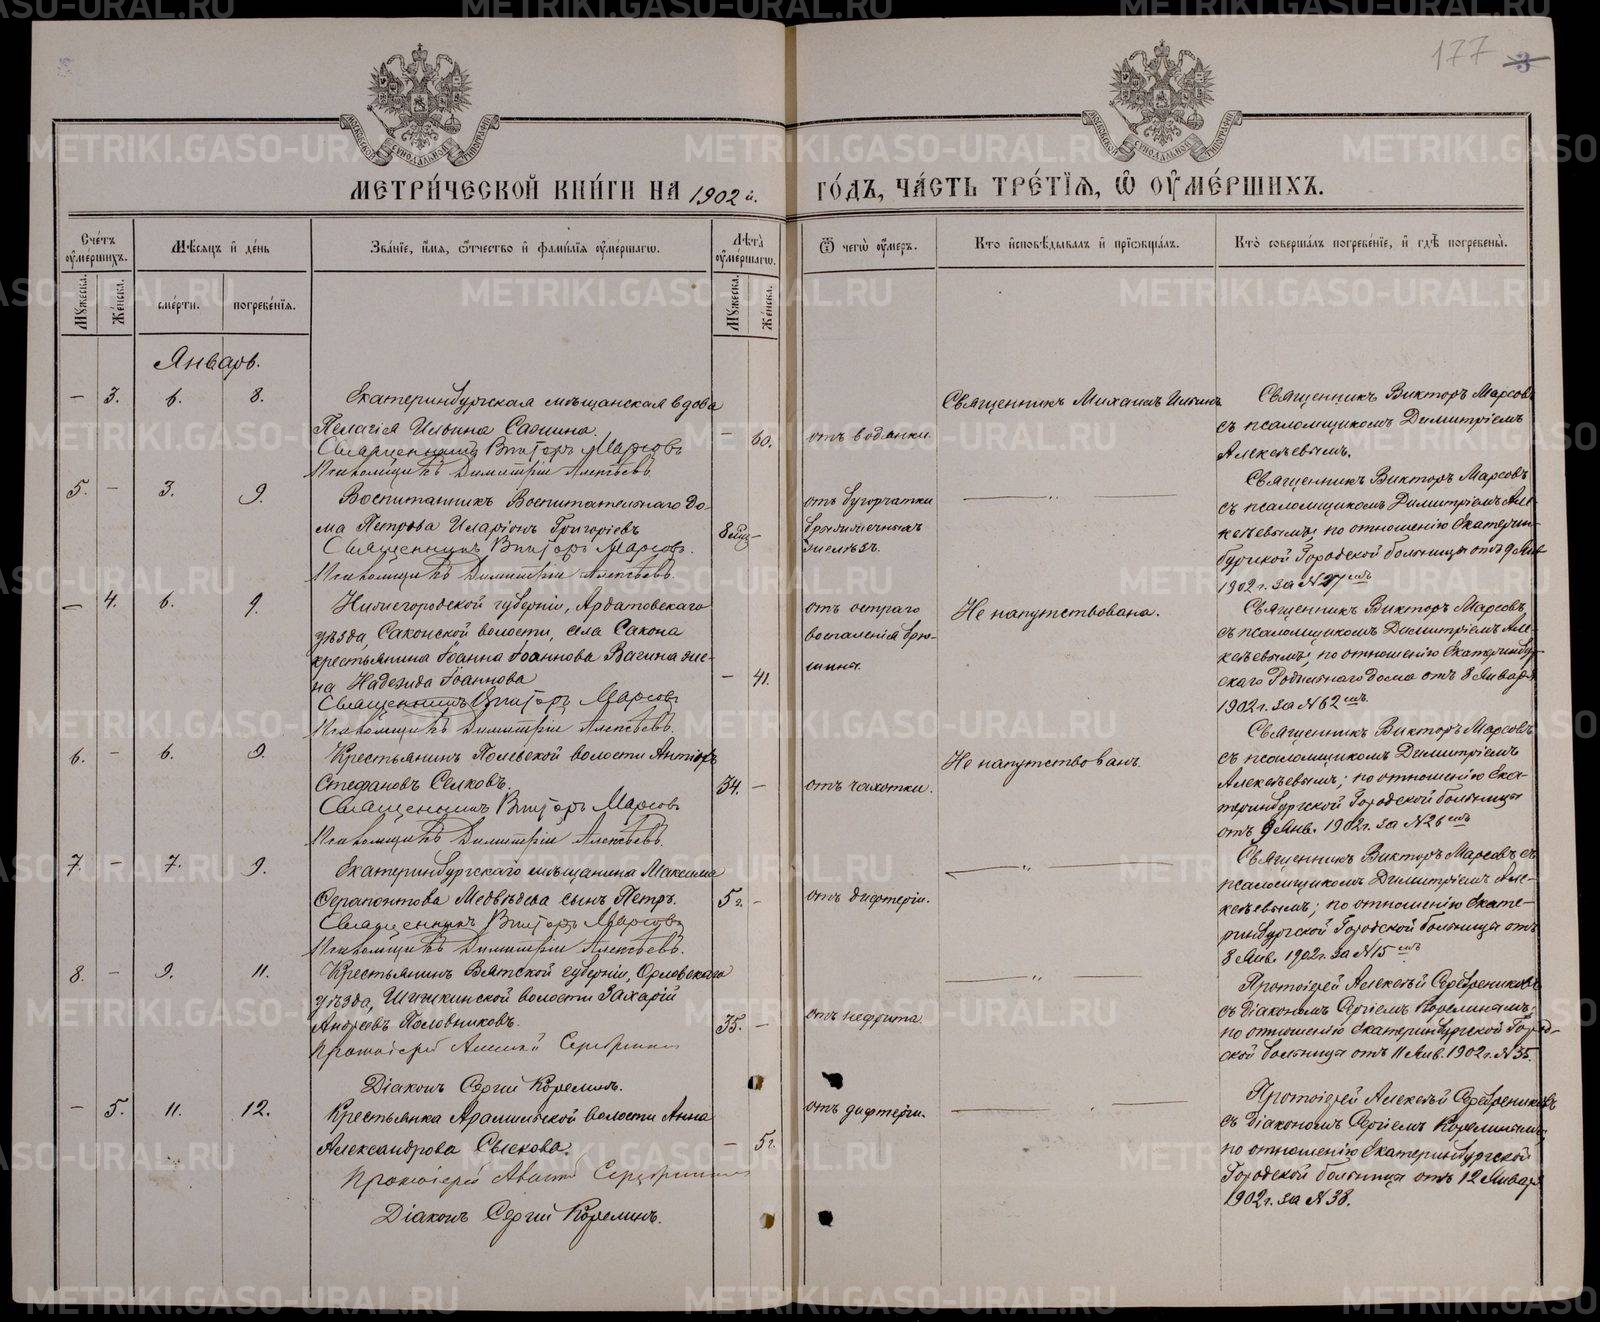 177 3
МЕТРИ́ЧЕСКОЙ КНИ́ГИ НА 1902 й. ГО́ДЪ, ЧА́СТЬ ТРЕ́ТІѦ, Ѡ ОУМЕ́РШИХЪ.
Счётъ оумершихъ.
Мѣсяцъ и день
Званіе, имя, отчество и фамилія оумершагѡ.
Лѣта оумершагѡ.
Ѿ чегѡ оумеръ.
Кто исповѣдывалъ и пріобщалъ.
Кто совершалъ погребеніе, и гдѣ погребены.
Мужеска. Женска. смерти. погребенія. Мужеска. Женска.
Январь.
— 3. 6. 8.
Екатеринбургская мѣщанская вдова
Пелагія Ильина
Священникъ Викторъ Марсовъ
Псаломщикъ Димитрій Алексѣевъ.
— 60.
отъ водянки.
Священникъ Михаилъ
Священникъ Викторъ Марсовъ
съ псаломщикомъ Димитріемъ
Алексѣевымъ.
5. — 3. 9.
Воспитанникъ Воспитательнаго До-
ма Петрова Иларіонъ Григорьевъ
Священникъ Викторъ Марсовъ.
Псаломщикъ Димитрій Алексѣевъ.
8 мѣц —
отъ бугорчатки
желѣзъ.
Священникъ Викторъ Марсовъ
съ псаломщикомъ Димитріемъ Але-
ксѣевымъ; по отношенію Екатерин-
бургской Городской больницы отъ 9 Янв
1902 г. за № 27
— 4. 6. 9.
Нижегородской губерніи, Ардатовскаго
уѣзда, Саконской волости, села Сакона
крестьянина Іоанна Іоаннова Вагина же-
на Надежда Іоаннова
Священникъ Викторъ Марсовъ
Псаломщикъ Димитрій Алексѣевъ.
— 41.
отъ остраго
воспаленія брю-
шины.
Не напутствована.
Священникъ Викторъ Марсовъ
съ псаломщикомъ Димитріемъ Але-
ксѣевымъ; по отношенію Екатеринбур-
скаго Родильнаго Дома отъ 8 Января
1902 г. за № 62
6. — 6. 9.
Крестьянинъ Полевской волости
Стефановъ
Священникъ Викторъ Марсовъ
Псаломщикъ Димитрій Алексѣевъ.
34. —
отъ чахотки.
Не напутствованъ.
Священникъ Викторъ Марсовъ
съ псаломщикомъ Димитріемъ
Алексѣевымъ; по отношенію Ека-
теринбургской Городской больницы
отъ 9 Янв. 1902 г. за № 26
7. — 7. 9.
Екатеринбургскаго мѣщанина Максима
Ферапонтова Медвѣдева сынъ Петръ.
Священникъ Викторъ Марсовъ
Псаломщикъ Димитрій Алексѣевъ.
5 г. —
отъ дифтеріи.
Священникъ Викторъ Марсовъ съ
псаломщикомъ Димитріемъ Але-
ксѣевымъ; по отношенію Екате-
ринбургской Городской больницы отъ
8 Янв. 1902 г. за № 15
8. — 9. 11.
Крестьянинъ Вятской губерніи, Орловскаго
уѣзда, волости Захарій
Андреевъ Половниковъ.
Протоіерей Алексій Серебренниковъ
Діаконъ Сергій Корелинъ.
35. —
отъ нефрита
Протоіерей Алексѣй Серебренниковъ
съ діакономъ Сергіемъ Корелинымъ;
по отношенію Екатеринбургской Город-
ской больницы отъ 11 Янв. 1902 г. № 35.
— 5. 11. 12.
Крестьянка Арамильской волости Анна
Александрова
Протоіерей Серебренниковъ
Діаконъ Сергій Корелинъ.
— 5 г.
отъ дифтеріи.
Протоіерей Алексѣй Серебренниковъ
съ діакономъ Сергіемъ Корелинымъ;
по отношенію Екатеринбургской
Городской больницы отъ 12 Января
1902 г. за № 38.
METRIKI.GASO-URAL.RU